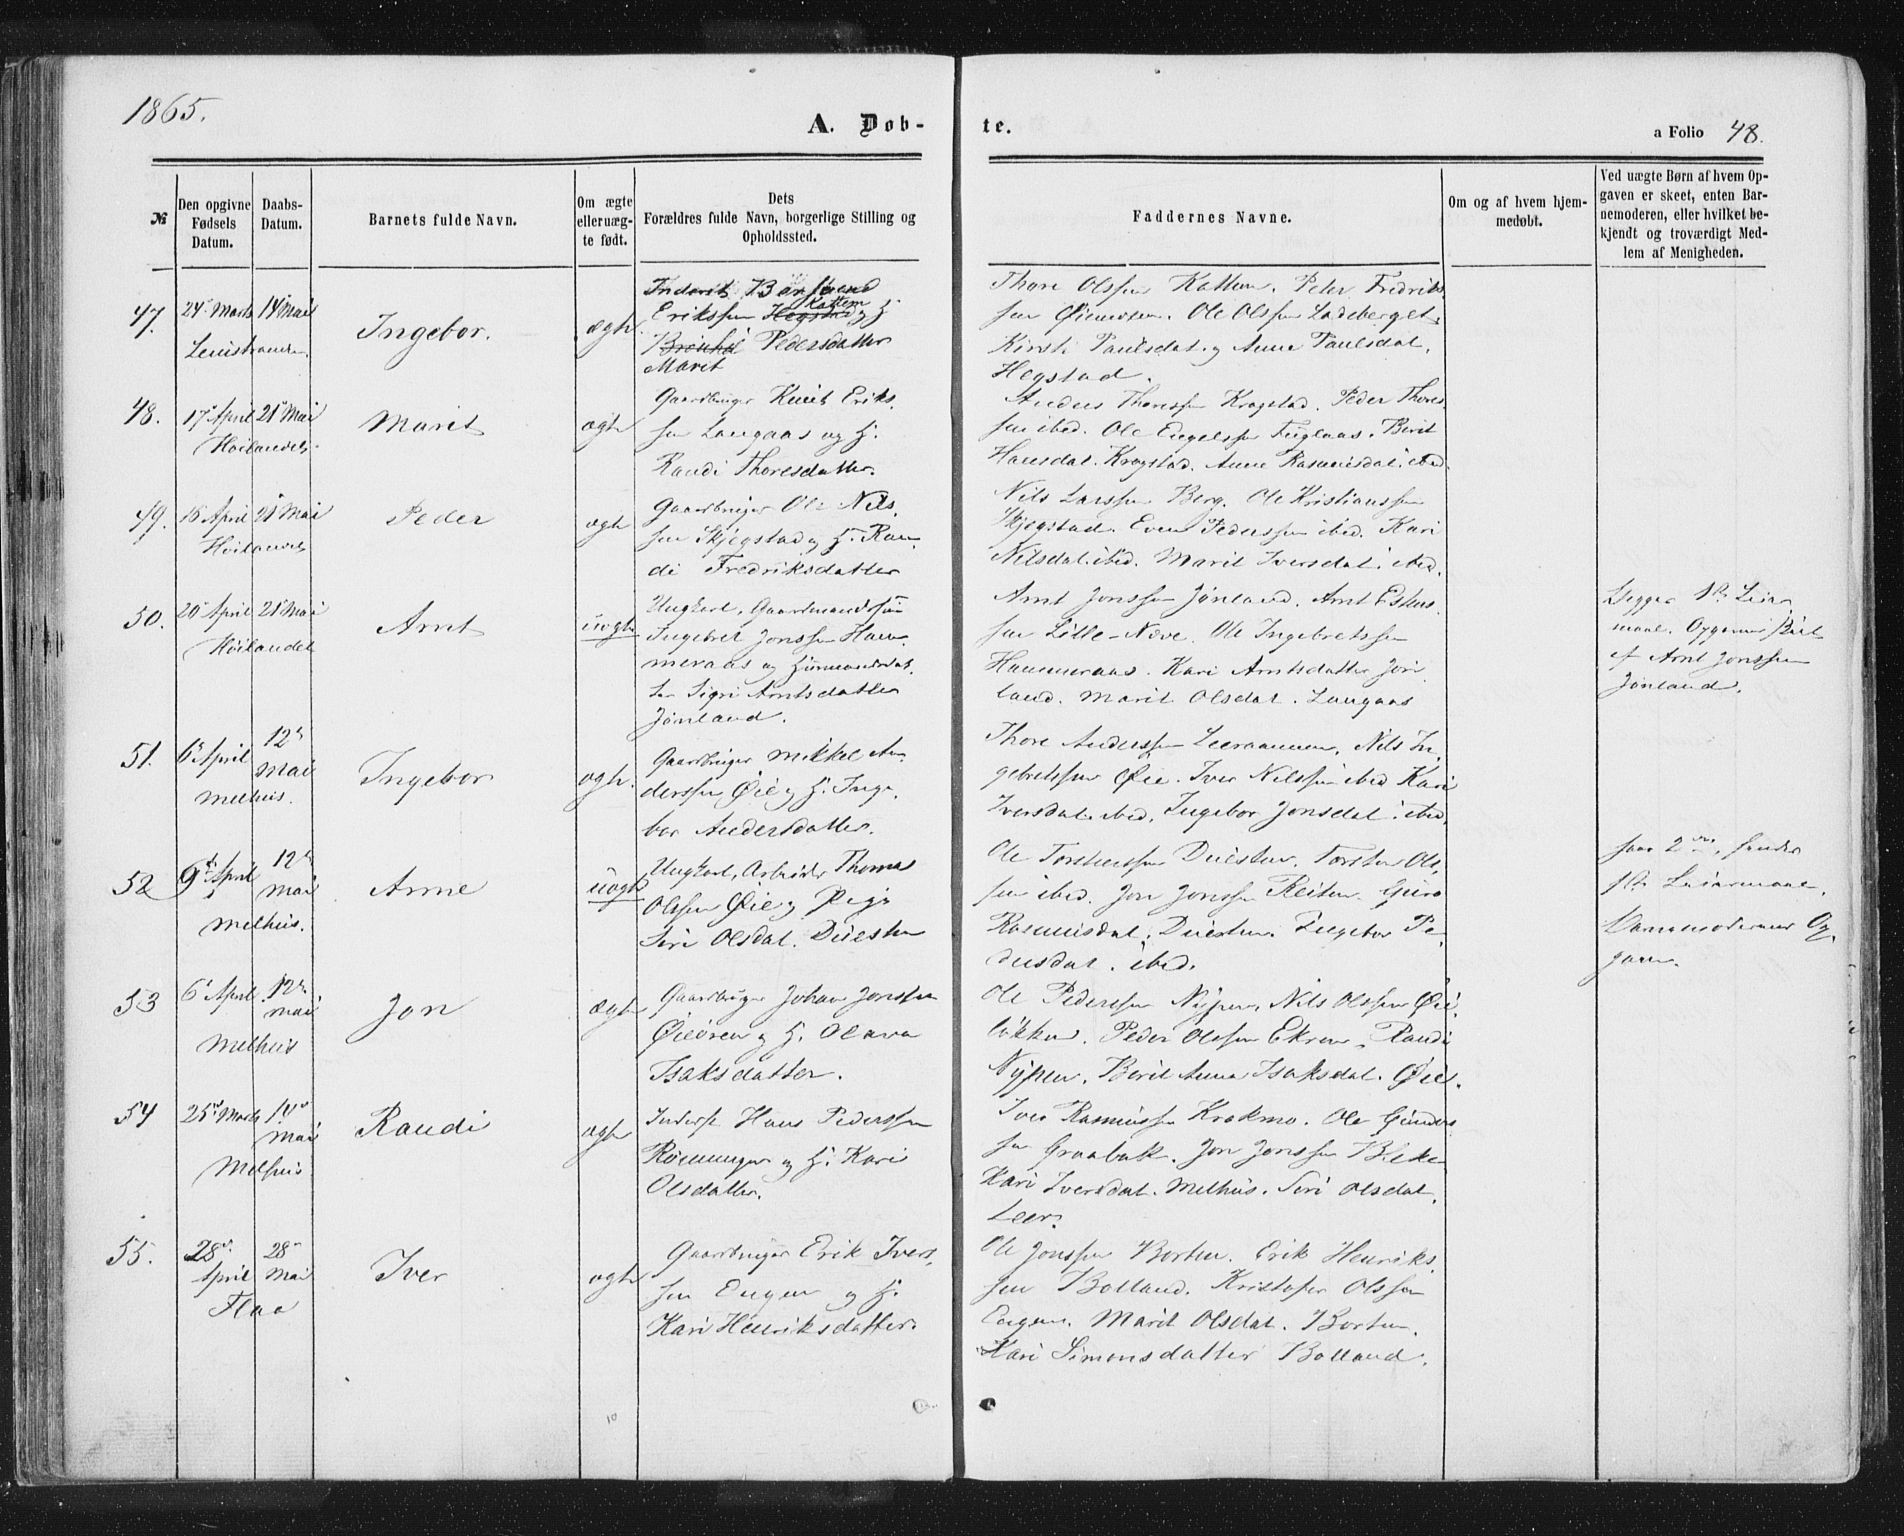 1865.
A. Døb-
te.
a Folio 48.
№
Den opgivne Fødsels Datum.
Daabs-Datum.
Barnets fulde Navn.
Om ægte eller uæg-te født.
Dets Forældres fulde Navn, borgerlige Stilling og Opholdssted.
Faddernes Navne.
Om og af hvem hjem-medøbt.
Ved uægte Børn af hvem Op-gaven er skeet, enten Bar-nemoderen, eller hvilket be-kjendt og troværdigt Med-lem af Menigheden.
47. 24 Marts 14 Mai
Ingebor.
ægte
Eriksen Hegstad Kattem og H.
Pedersdatter
Marit
Thore Olssen Kattem. Peter Fredriks
sen Øiemoen. Ole Olssen Ladeberget
Kirsti Paulsdat. og Anne Paulsdat.
Hegstad.
48. 17 April 21 Mai
Høilandet
Marit
ægte
Gaardbruger Knut Eriks.
sen Langaas og H.
Randi Thoresdatter.
Anders Thoressen Krogstad. Peder Thores
sen ibid. Ole Engelssen Fuglaas. Berit
Hansdat. Krogstad. Anne Rasmusdat. ibid.
49. 16 April 21 Mai
Høilandet
Peder
ægte
Gaardbruger Ole Nils.
sen Skjegstad og H. Ran
di Fredriksdatter
Nils Larssen Berg. Ole Kristianssen
Skjegstad. Even Pederssen ibid. Kari
Nilsdat. ibid. Marit Iversdat. ibid.
50. 20 April 21 Mai
Høilandet
Arnt
uægte
Ungkarl, Gaardmandssøn
Ingebret Jonssen Ham
meraas og Huusmandsdat.
ter Sigri Arntsdatter
Jønland.
Arnt Jonssen Jønland. Arnt Estens
sen Lille-Næve. Ole Ingebretssen
Hammeraas. Kari Arntsdatter Jøn
land. Marit Olsdat. Langaas
Begges 1ste Leier
maal. Opgaven skeet
af Arnt Jonssen
Jønland.
51. 6 April 12 Mai
Melhus.
Ingebor
ægte.
Gaardbruger Mikkel An
derssen Øie og H. Inge
bor Andersdatter.
Thore Anderssen Leeraanmen. Nils In
gebretssen Øie. Iver Nilssen ibid Kari
Iversdat. ibid. Ingebor Jonsdat. ibid.
52 9 April 12 Mai
Melhus.
Arne
uægte
Ungkarl, Arbeider Thomas
Olssen Øie og Pige
Siri Olsdat. Duesten
Ole Torstenssen Duesten. Torsten Ols
sen ibid. Jon Jonssen Reiten. Guro
Rasmusdat. Duesten. Ingebor Pe
dersdat. ibid.
hans 2det, hendes
1ste Leiermaal.
Barnemoderens Op
gave.
53 6 April 12 Mai
Melhus
Jon
ægte
Gaardbruger Johan Jonssen
Øieøren og H. Olava
Isaksdatter.
Ole Pederssen Nypen. Nils Olssen Øie
løkken. Peder Olssen Ekren. Randi
Nypen. Berit Anna Isaksdat. Øie.
54 25 Marts 14 Mai
Melhus
Randi
ægte
Inderst Hans Pederssen
Rønningen og H. Kari
Olsdatter.
Iver Rasmussen Krakmo. Ole Gunders
sen Graabak. Jon Jonssen Bleke
Kari Iversdat. Melhus. Siri Olsdat.
Leer.
55. 28 April 28 Mai
Flaa
Iver
ægte
Gaardbruger Erik Ivers.
sen Engen og H.
Kari Henriksdatter.
Ole Jonssen Borten. Erik Henriks.
sen Bolland. Kristofer Olssen
Engen. Marit Olsdat. Borten.
Kari Simonsdatter Bolland.
10